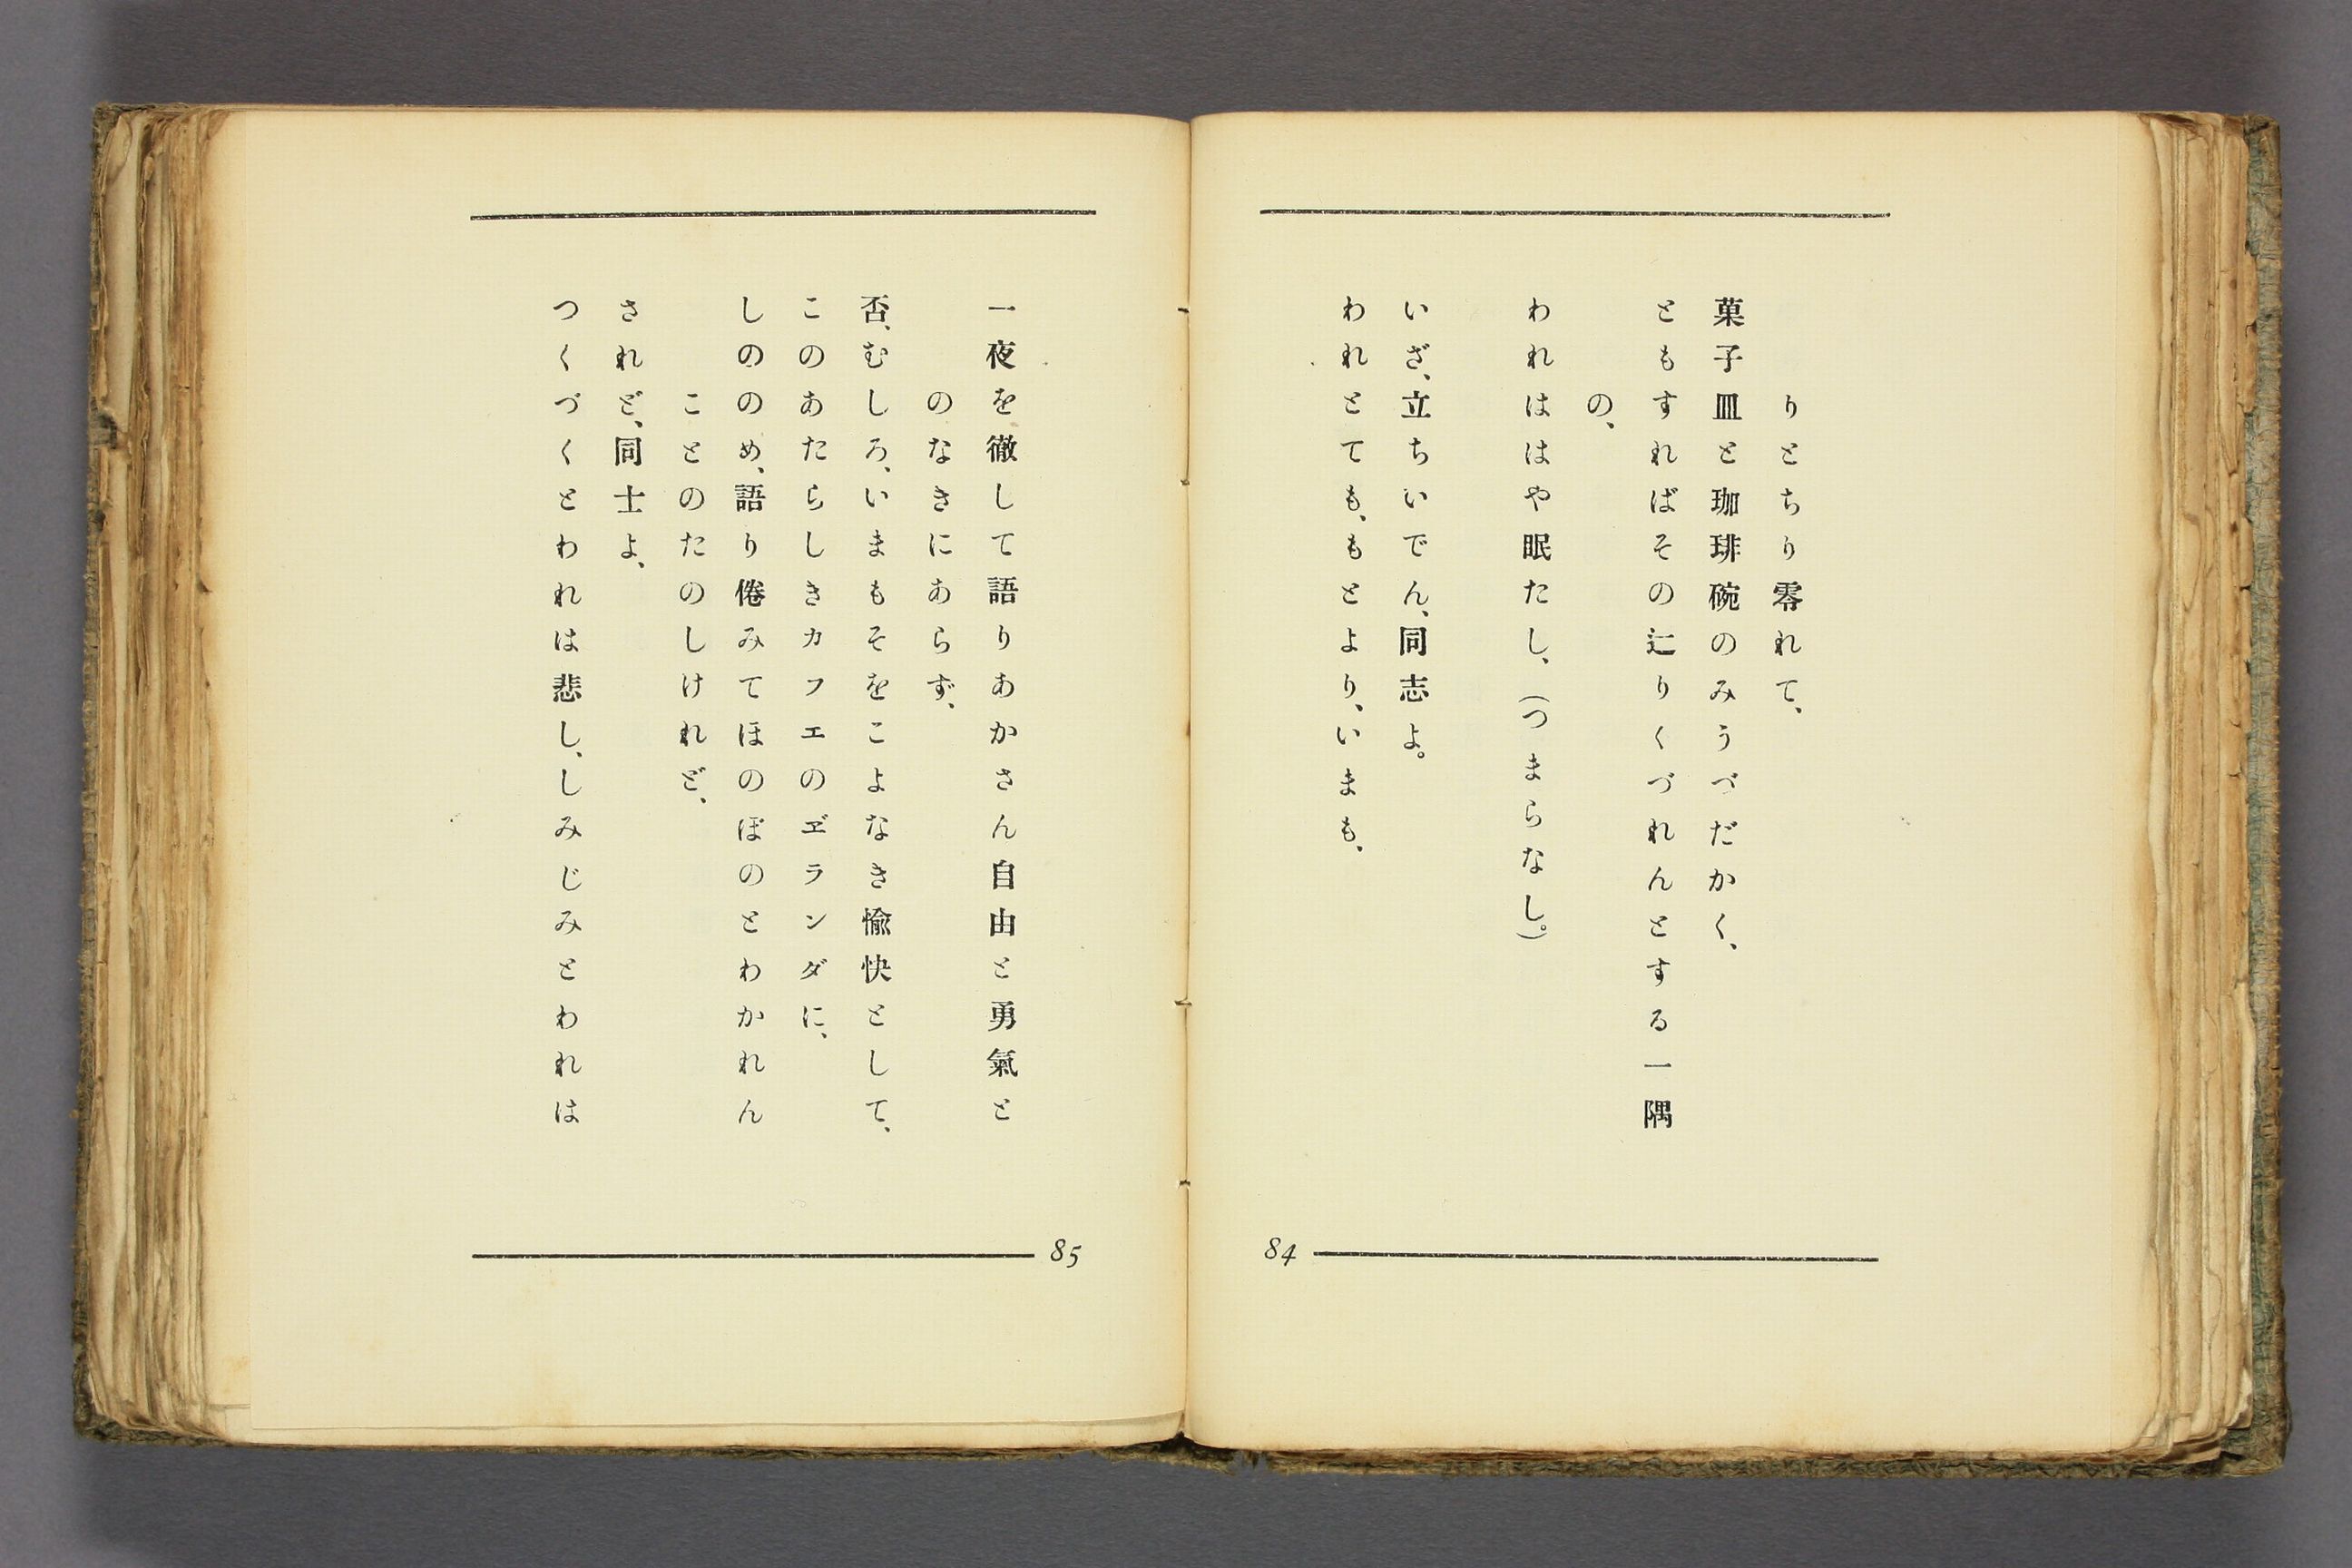 りとちり零れて、
菓子皿と珈琲碗のみうづだかく、
ともすればその辷りくづれんとする一隅
の、
われははや眠たし、(つまらなし。)
いざ、立ちいでん、同志よ。
われとても、もとより、いまも、
84
一夜を徹して語りあかさん自由と勇氣と
のなきにあらず、
否、むしろ、いまもそをこよなき愉快として、
このあたらしきカフエのヹランダに、
しののめ、語り倦みてほのぼのとわかれん
ことのたのしけれど、
されど、同士よ、
つくづくとわれは悲し、しみじみとわれは
85